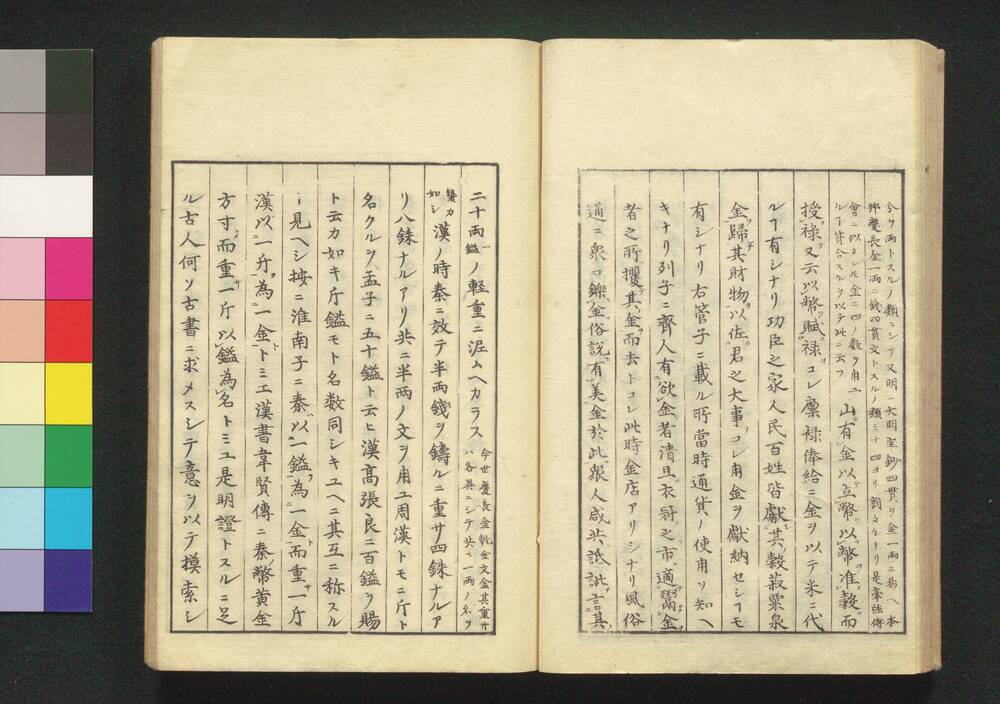 今ヲ両トスルノ類ニシテ又明ノ大明宝鈔四貫ヲ金一両ニ易ヘ本
邦慶長金一両ニ銭四貫文トスルノ類ミナ四ヨリ
會ニ以タレ𪜈金ニ四ノ数ヲ用ユ
ルヿ符合スルヲ以テ此ニ云フ
山有金以立幣以幣准穀而
授禄又云以幣賦禄コレ廩禄俸給ニ金ヲ以テ米ニ代
ルヿ有シナリ功臣之家人民百姓皆獻其穀菽粟泉
金歸其財物以佐君之大事コレ用金ヲ献納セシヿモ
有シナリ右管子ニ載ル所當時通貨ノ使用ヲ知ヘ
キナリ列子ニ齊人有欲金者清旦衣冠之市適鬻金
者之所攫其金而去トコレ此時金店アリシナリ風俗
通ニ衆口鑠金俗説有美金於此衆人咸共詆訿言其
二十両鎰一ノ軽重ニ泥ムヘカラス
今世慶長金乾金文金其重サ
ハ各異ニシテ共ニ一両ノ名ヲ
襲カ
如シ
漢ノ時秦ニ效テ半両銭ヲ鑄ルニ重サ四銖ナルア
リ八銖ナルアリ共ニ半両ノ文ヲ用ユ周漢トモニ斤ト
名クルヲ孟子ニ五十鎰ト云ヒ漢高張良ニ百鎰ヲ賜
ト云カ如キ斤鎰モト名数同シキユヘニ其互ニ称スル
ヿ見ヘシ按ニ淮南子ニ秦以一鎰為一金而重一斤
漢以一斤為一金トミエ漢書韋賢傳ニ秦幣黄金
方寸而重一斤以鎰為名トミユ是明證トスルニ足
ル古人何ソ古書ニ求メスシテ意ヲ以テ摸索シ